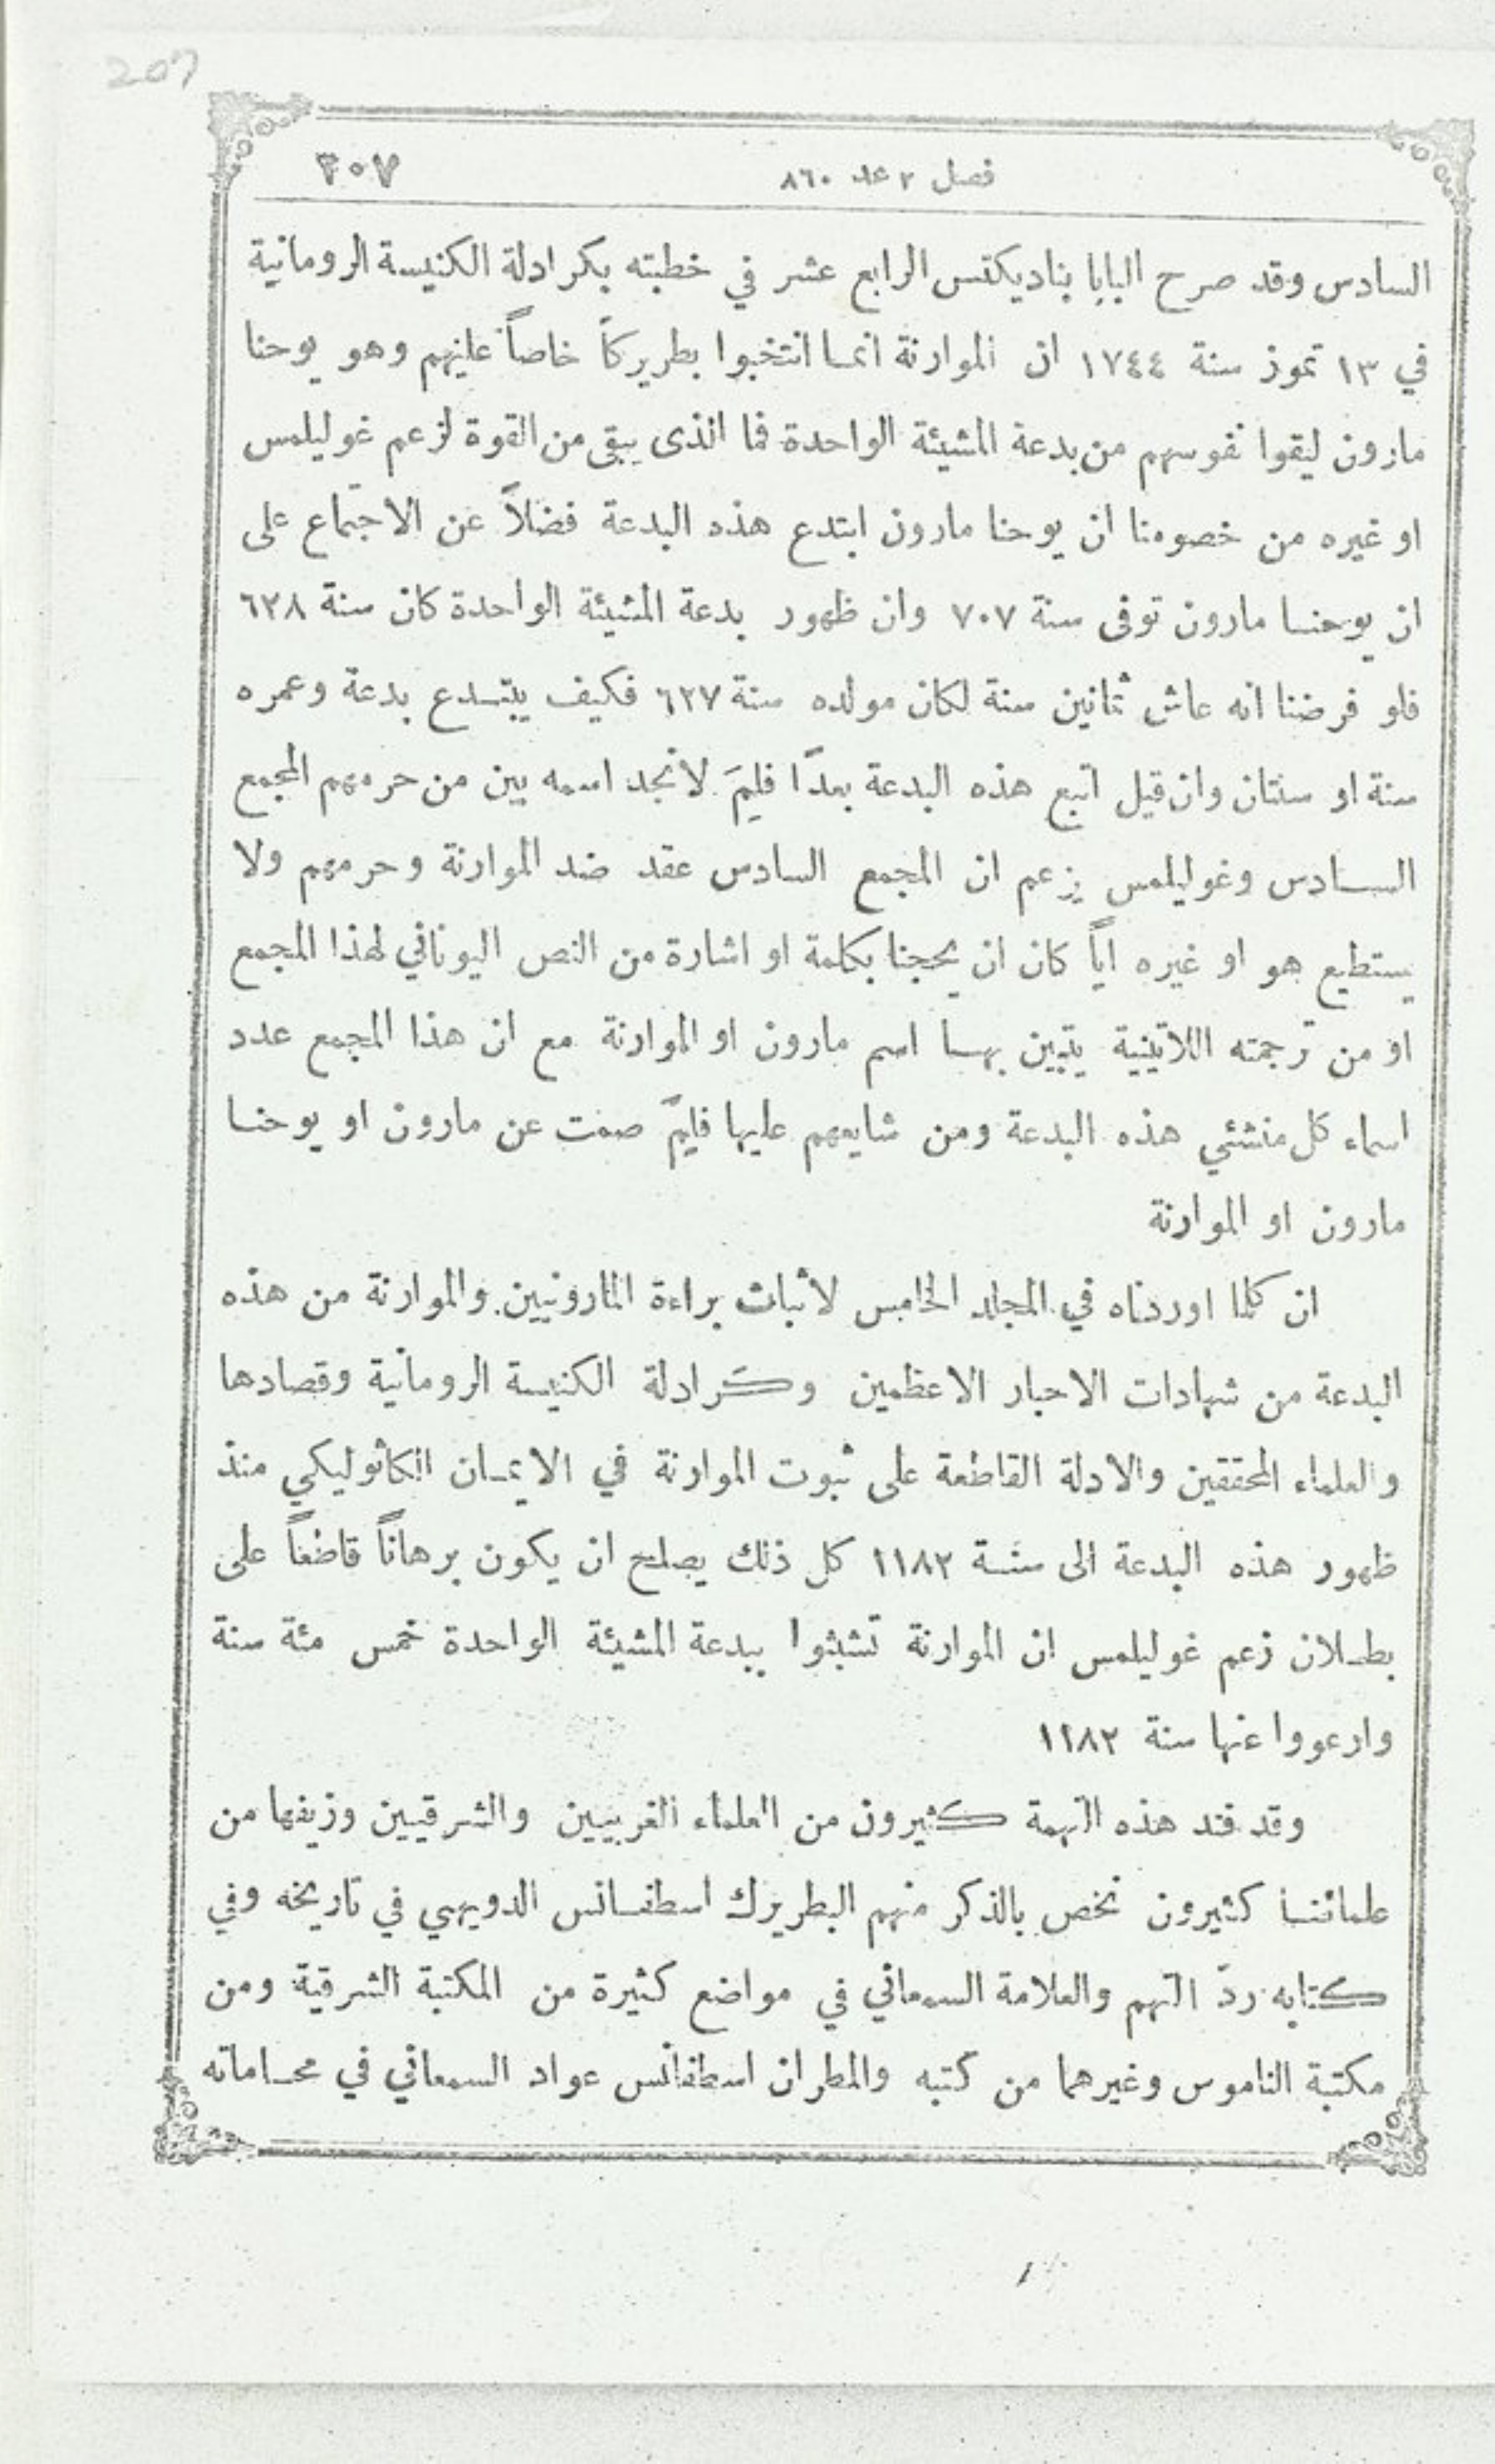 207
فصل ٢ عد ٨٦٠ ٢٠٧
السادس وقد صرح البابا بناديكتس الرابع عشر في خطبته بكرادلة الكنيسة الرومانية
في ١٣ تموز سنة ١٧٤٤ ان الموارنة انما انتخبوا بطريركاً خاصاً عليهم وهو يوحنا
مارون ليقوا نفوسهم من بدعة المشيئة الواحدة فما الذى يبقى من القوة لزعم غوليلمس
او غيره من خصومنا ان يوحنا مارون ابتدع هذه البدعة فضلاً عن الاجتماع على
ان يوحنا مارون توفى سنة ٧٠٧ وان ظهور بدعة المشيئة الواحدة كان سنة ٦٢٨
فلو فرضنا انه عاش ثمانين سنة لكان مولده سنة ٦٢٧ فكيف يبتدع بدعة وعمره
سنة او سنتان وان قيل اتبع هذه البدعة بعدًا فلِمَ لا نجد اسمه بين من حرمهم المجمع
السادس وغوليلمس يزعم ان المجمع السادس عقد ضد الموارنة وحرمهم ولا
يستطيع هو او غيره اياً كان ان يحجنا بكلمة او اشارة من النص اليوناني لهذا المجمع
او من ترجمته اللاتينية يتبين بها اسم مارون او الموارنة مع ان هذا المجمع عدد
اسماء كل منشئي هذه البدعة ومن شايعهم عليها فلِمَ صمت عن مارون او يوحنا
مارون او الموارنة
ان كلما اوردناه في المجلد الخامس لاثبات براءة المارونيين والموارنة من هذه
البدعة من شهادات الاحبار الاعظمين وكرادلة الكنيسة الرومانية وقصادها
والعلماء المحققين والادلة القاطعة على ثبوت الموارنة في الايمان الكاثوليكي منذ
ظهور هذه البدعة الى سنة ١١٨٢ كل ذلك يصلح ان يكون برهاناً قاطعاً على
بطلان زعم غوليلمس ان الموارنة تشبثوا ببدعة المشيئة الواحدة خمس مئة سنة
وارعووا عنها سنة ١١٨٢
وقد فند هذه التهمة كثيرون من العلماء الغربيين والشرقيين وزيفها من
علمائنا كثيرون نخص بالذكر منهم البطريرك اسطفانس الدويهي في تاريخه وفي
كتابه ردّ التهم والعلامة السمعاني في مواضع كثيرة من المكتبة الشرقية ومن
مكتبة الناموس وغيرهما من كتبه والمطران اسطفانس عواد السمعاني في محاماته